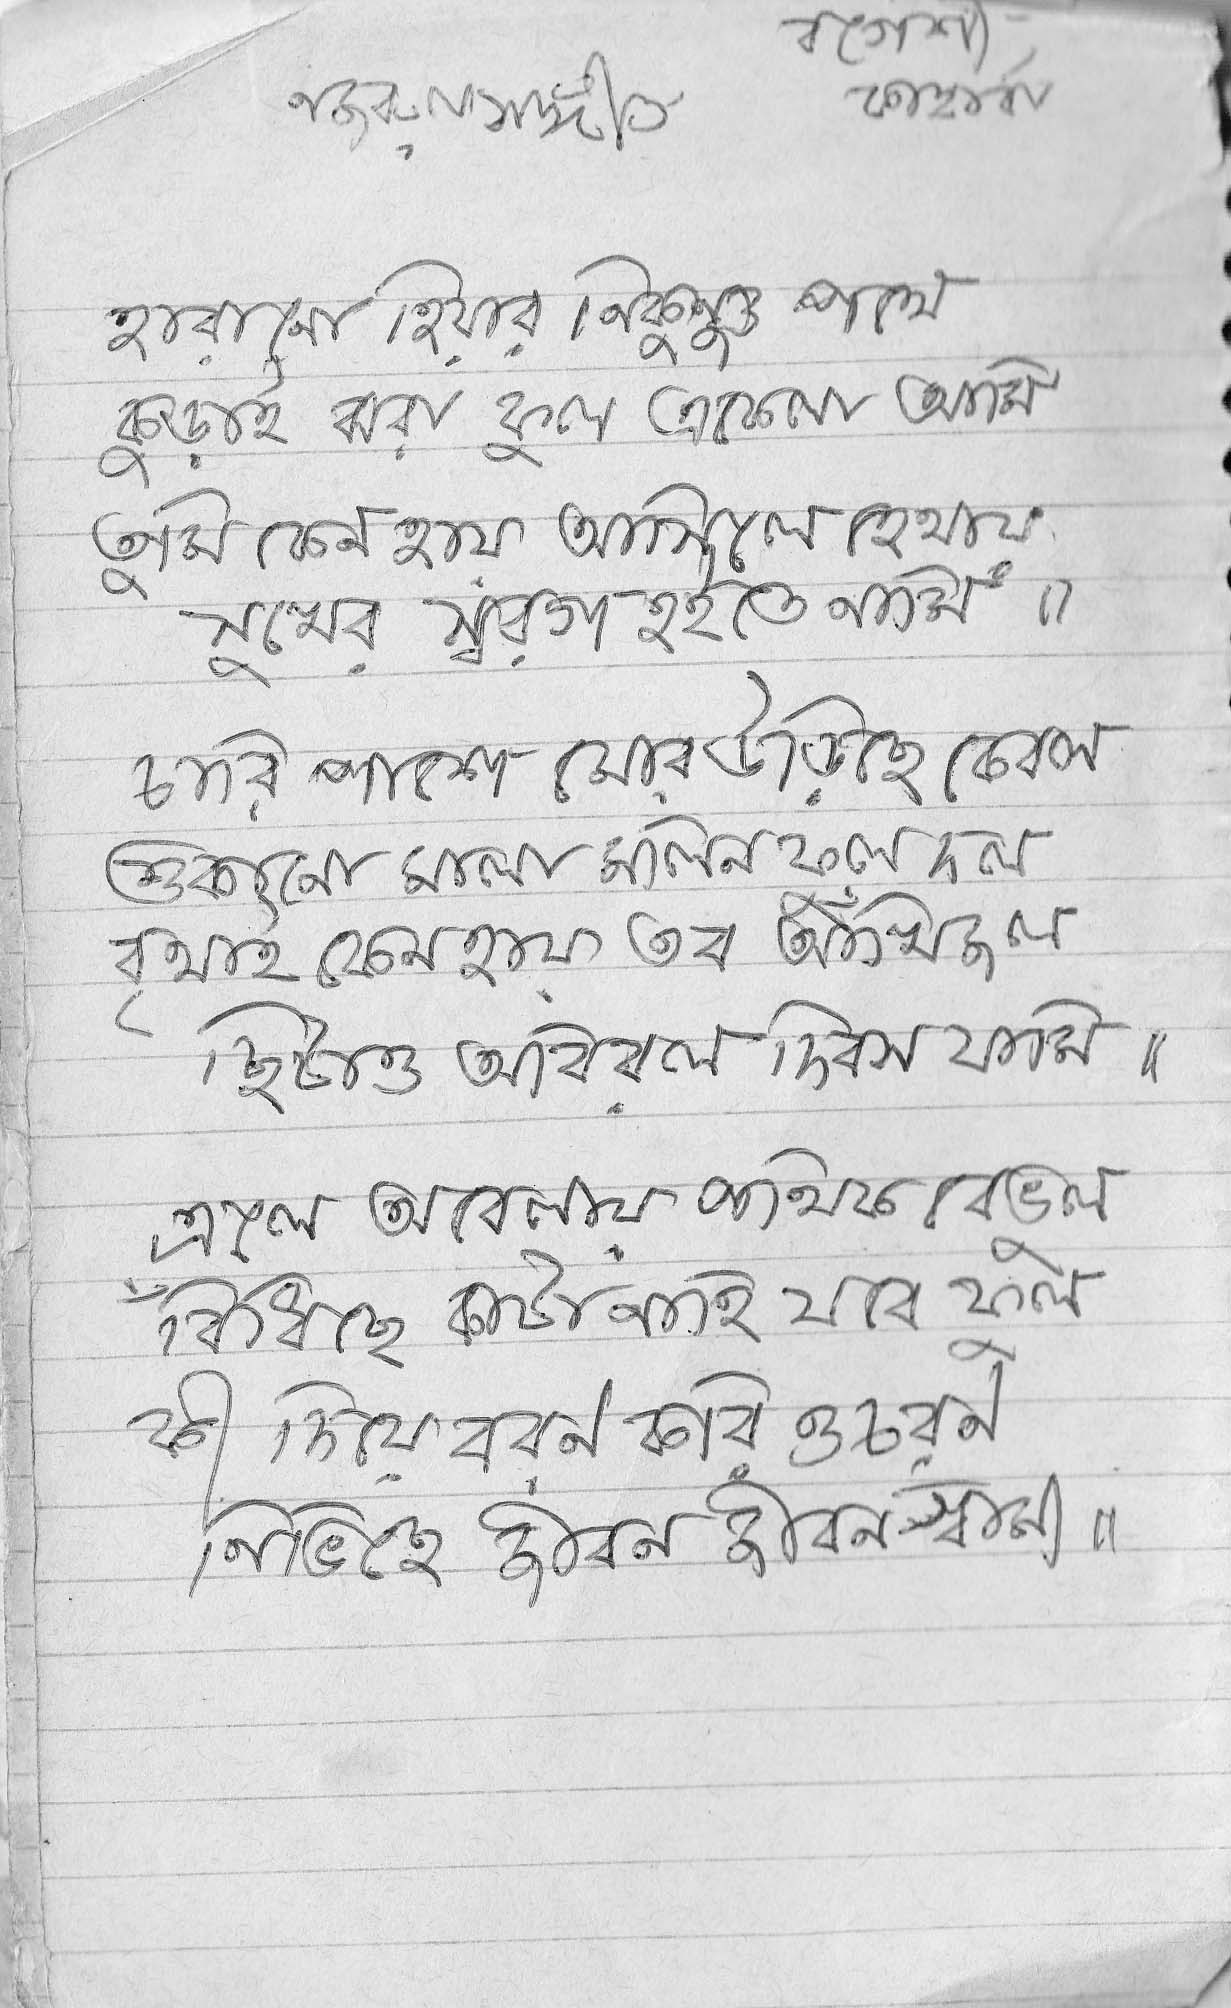 বাগেশ্রী -
নজরুলসঙ্গীত কাহার্বা
হারানো হিয়ার নিকুঞ্জ পথে
কুড়াই ঝরা ফুল একেলা আমি
তুমি কেন হায় আসিলে হেথায়
সুখের স্বরগ হইতে নামি ॥
চারি পাশে মোর উড়িছে কেবল
শুকানো মালা মলিন ফুলদল
বৃথাই কেন হায় তব আঁখিজল
ছিটাও অবিরল দিবস যামি ॥
এলে অবেলায় পথিক বেভুল
বিঁধিছে কাটা নাহি যবে ফুল
কী দিয়ে বরন করি ও চরন
নিভিছে জীবন জীবন স্বামী ॥